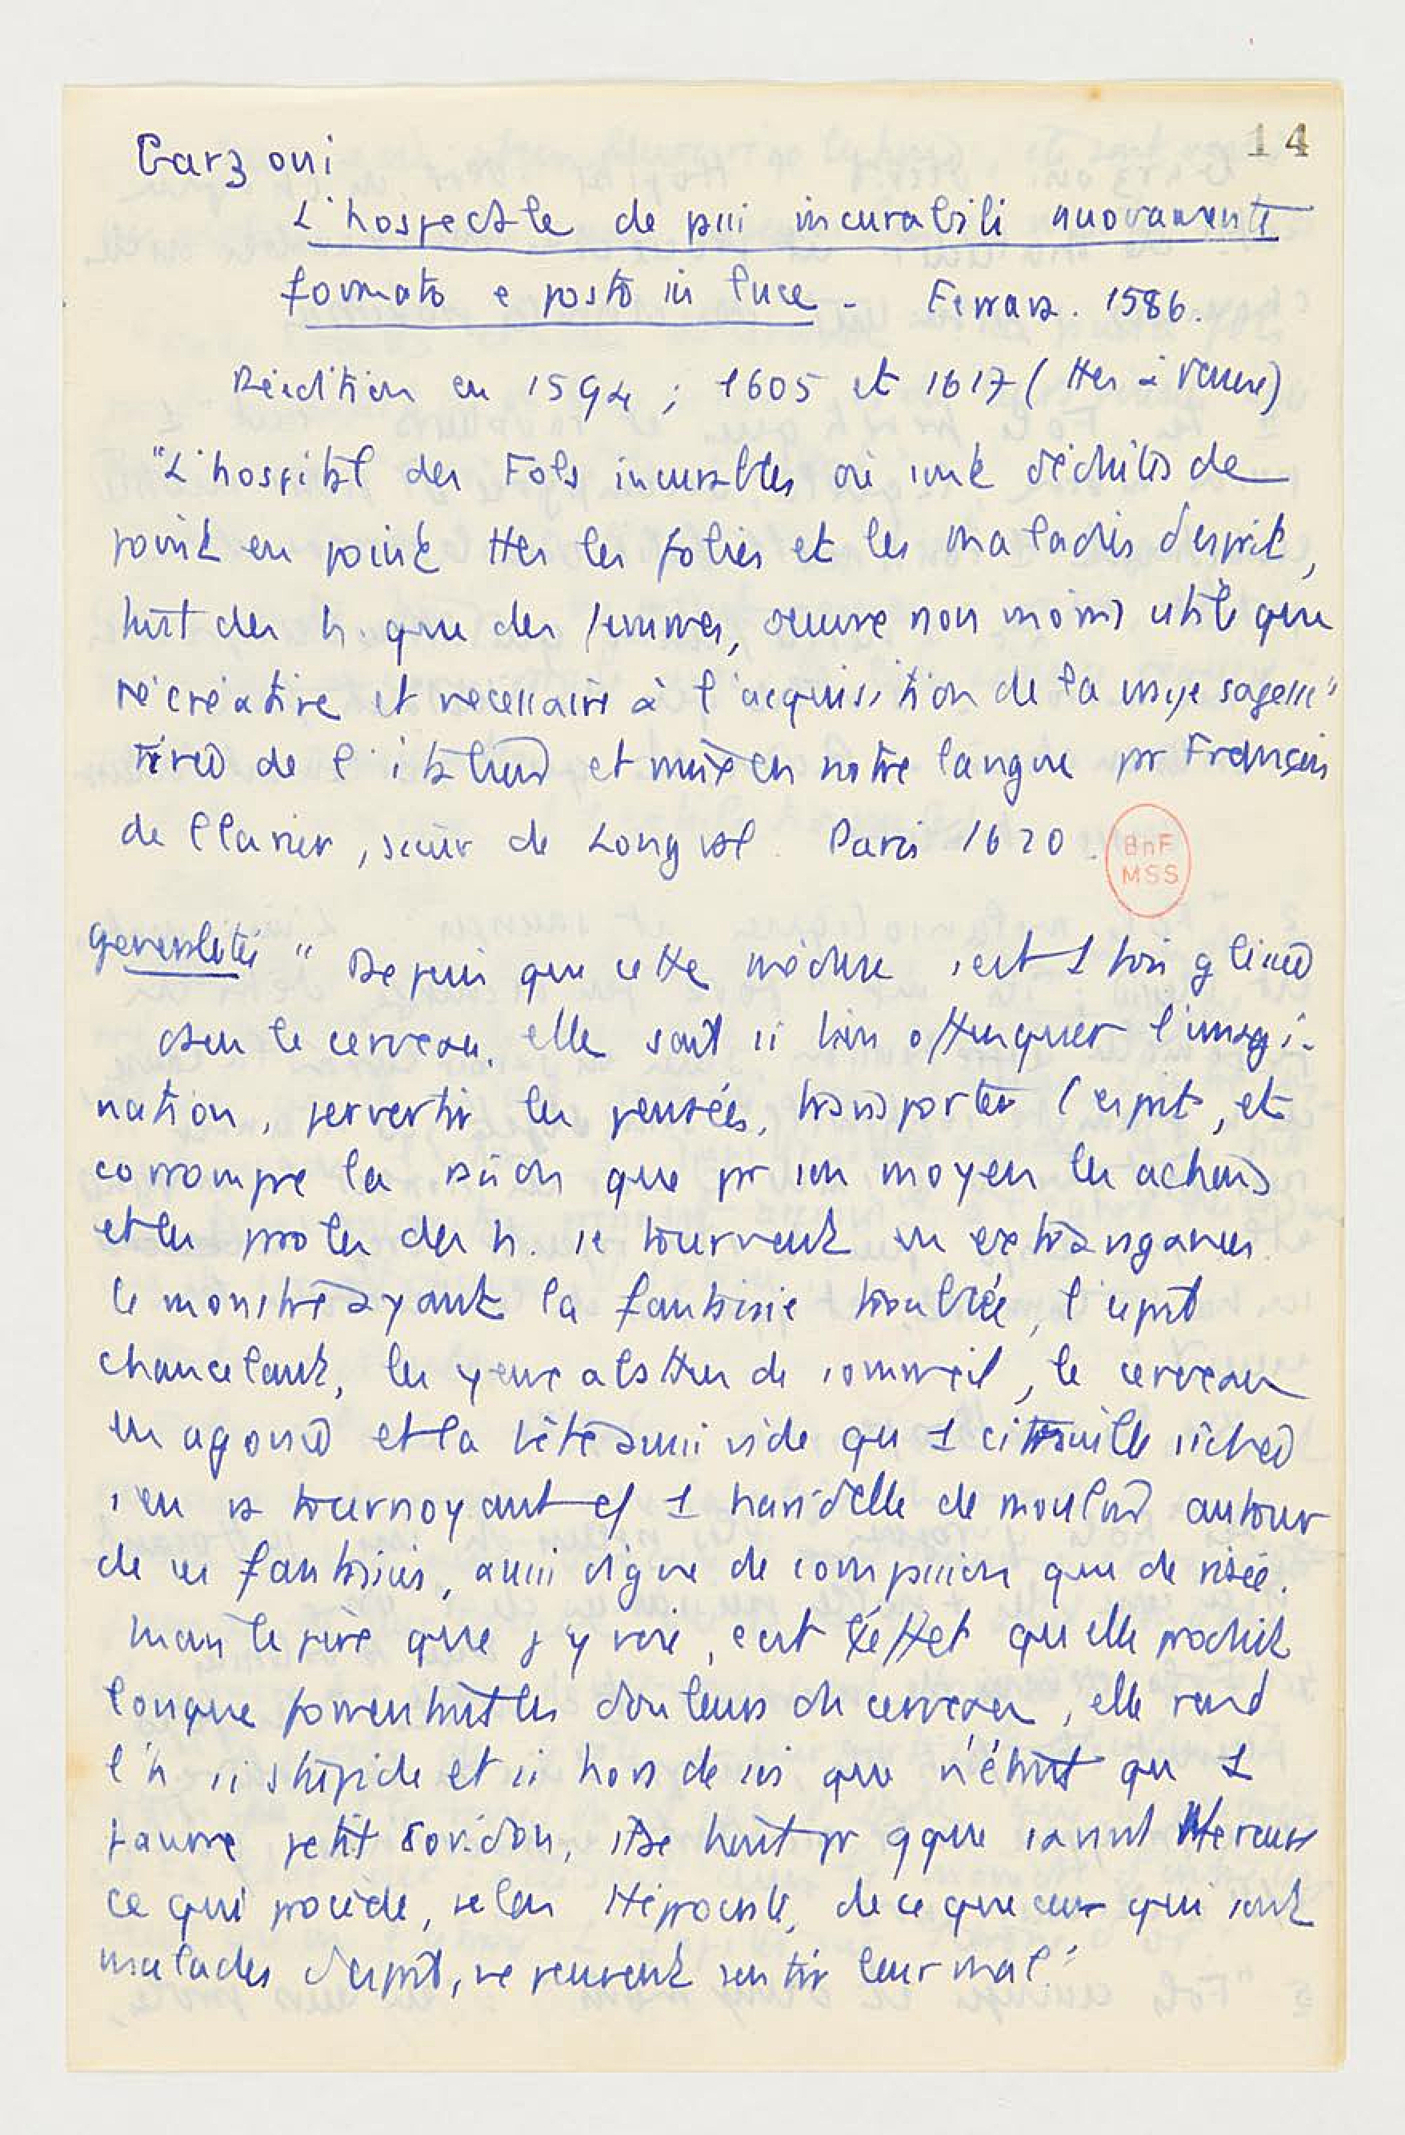 14
Garzoni
L'hospedale de pui incurabili nuovamente
formato e posto in luce - Ferrara. 1586.
Réédition en 1594 ; 1605 et 1617 (ttes à Venise)
"L'hospital des Fols incurables où sont déduites de
point en point ttes les folies et les maladies d'esprit,
tant des h. que des femmes, oeuvre non moins utile que
récréative et necessaire à l'acquisition de la vraye sagesse"
tirée de l'italien et mise en notre langue pr François
de Clarier, sieur de Longval. Paris 1620.
BnF
MSS
généralités " Depuis que cette méduse s'est 1 fois glissée
dans le cerveau, elle sait si bien offusquer l'imagi-
nation, pervertir les pensées, transporter l'esprit, et
corrompre la raison que pr son moyen les actions
et les proles des h. se tournent en extravagances.
le monstre ayant la fantaisie troublée, l'esprit
chancelant, les yeux abattus de sommeil, le cerveau
en agonie et la tête aussi vide qu'1 citrouille séchée
s'en va tournoyant cf 1 haridelle de moulin autour
de ses fantaisies, aussi digne de compassion que de risée.
mais le pire que j'y voie, c'est l'effet qu'elle produit
lorsque fomentant les douleurs du cerveau, elle rend
l'h. si stupide et si hors de soi que n'étant qu'1
pauvre petit Coridon, il se tient pr qque savant Mercure
ce qui procède, selon Hippocrate, de ce que ceux qui sont
malades d'esprit, ne peuvent sentir leur mal."